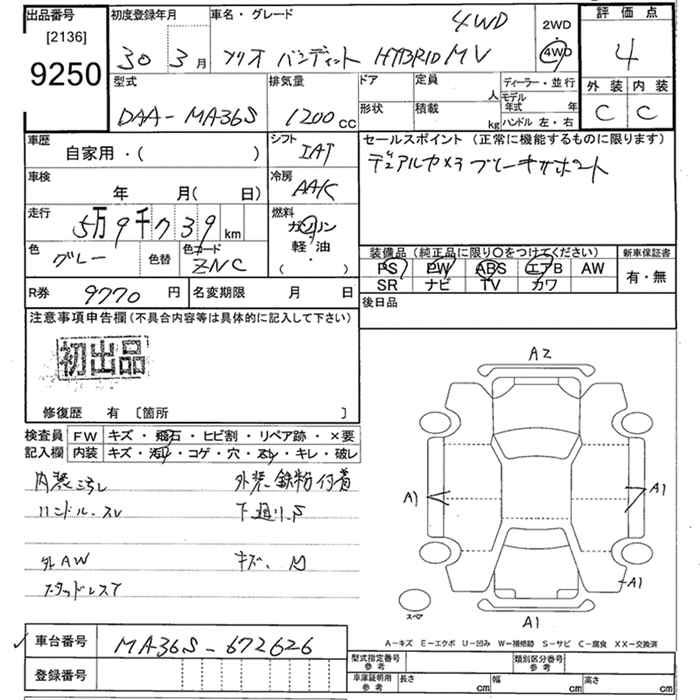 出品番号 [2136] 9250
初度登録年月 30年 3月
車名・グレード ソリオ バンディット HYBRID MV 4WD
2WD 4WD
評価点 4
外装 C 内装 C
型式 DAA-MA36S
排気量 1200cc
ドア 形状
定員 人
積載 kg
ディーラー・並行
モデル年式 年
ハンドル 左・右
車歴 自家用・( )
シフト IAT
セールスポイント (正常に機能するものに限ります)
デュアルカメラブレーキサポート
車検 年 月( 日)
冷房 AAC
走行 5万9千739km
燃料 ガソリン 軽・油 ・( )
色 グレー 色替 色コード ZNC
装備品 (純正品に限り○をつけてください)
PS PW ABS エアB AW
SR ナビ TV カワ
新車保証書 有・無
R券 9770円
名変期限 月 日
後日品
注意事項申告欄 (不具合内容等は具体的に記入して下さい)
初出品
修復歴 有 〔箇所 〕
検査員記入欄
FW キズ・飛石・ヒビ割・リペア跡・×要
内装 キズ・汚れ・コゲ・穴・スレ・キレ・破レ
内装汚レ 外装鉄粉付着
ハンドルスレ 下廻りS
外AW キズ、
スタッドレスT
A2
A1
A1
A1
A1
スペア
A-キズ E-エクボ U-凹み W-補修跡 S-サビ C-腐食 XX-交換済
車台番号 MA36S-672626
登録番号
型式指定番号 参考
類別区分番号 参考
車庫証明用 参考 長さ cm 幅 cm 高さ cm